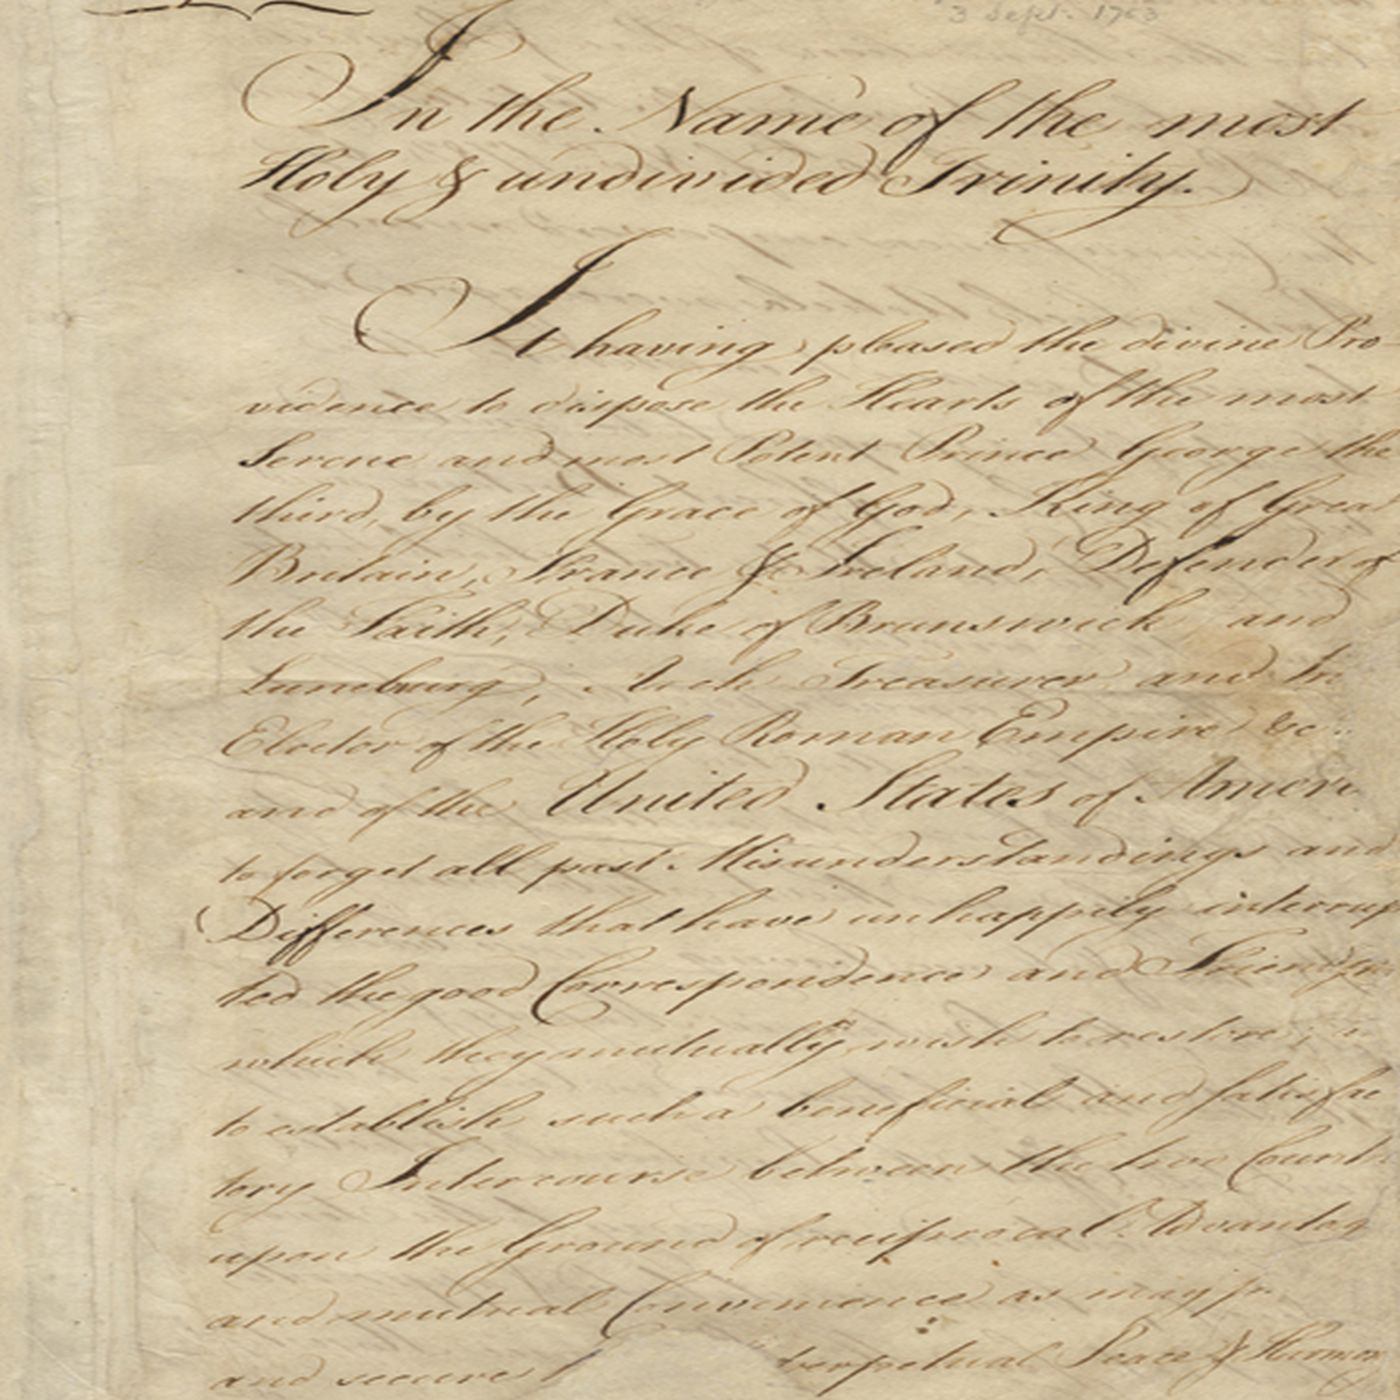 3 Sept. 1783
In the Name of the most
Holy & undivided Trinity.
It having pleased the divine Pro-
vidence to dispose the Hearts of the most
Serene and most Potent Prince George the
third, by the Grace of God, King of Grea
Britain, France & Ireland, Defender of
the Faith, Duke of Brunswick and
Luneburg, Arch Treasurer, and
Elector of the Holy Roman Empire &c..
and of the United States of Ameri
to forget all past Misunderstandings and
Differences that have unhappily interrup
ted the good Correspondence and Friendsh
which they mutually wish to restore;
to establish such a beneficial and satisfac
tory Intercourse between the two Countr
upon the Ground of reciprocal Advantag
and mutual Convenience as may pr
and secure perpetual Peace & Harmon